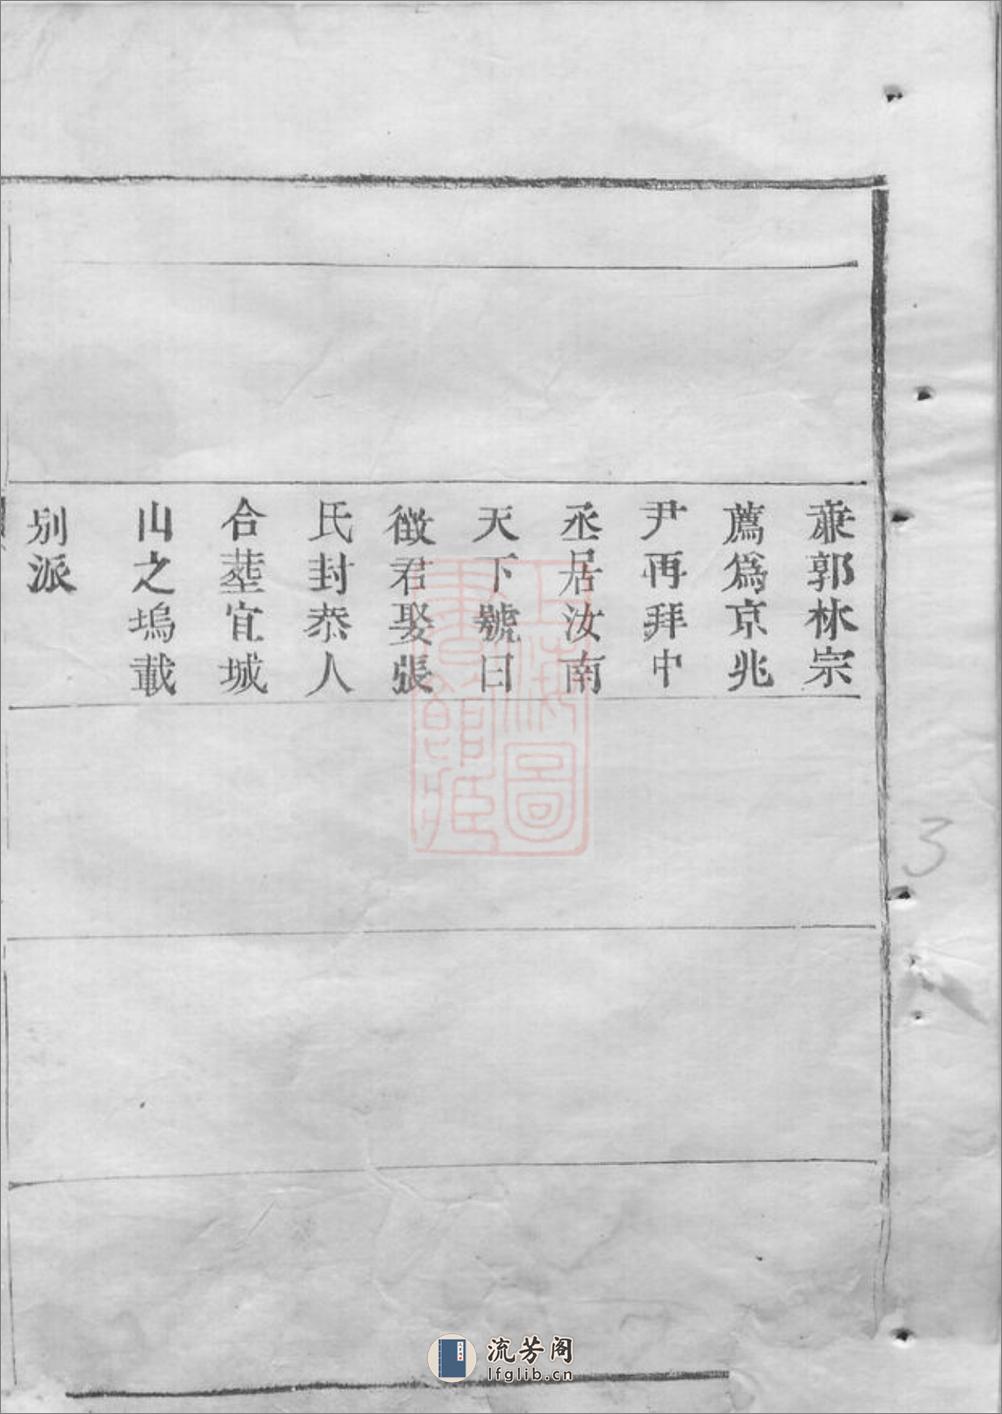 亷郭林宗
薦爲京兆
尹再拜中
丞居汝南
天下號曰
徵君娶張
氏封恭人
合塟宜城
山之塢載
别派
上海圖書館藏
3
流芳阁
lfglib.cn